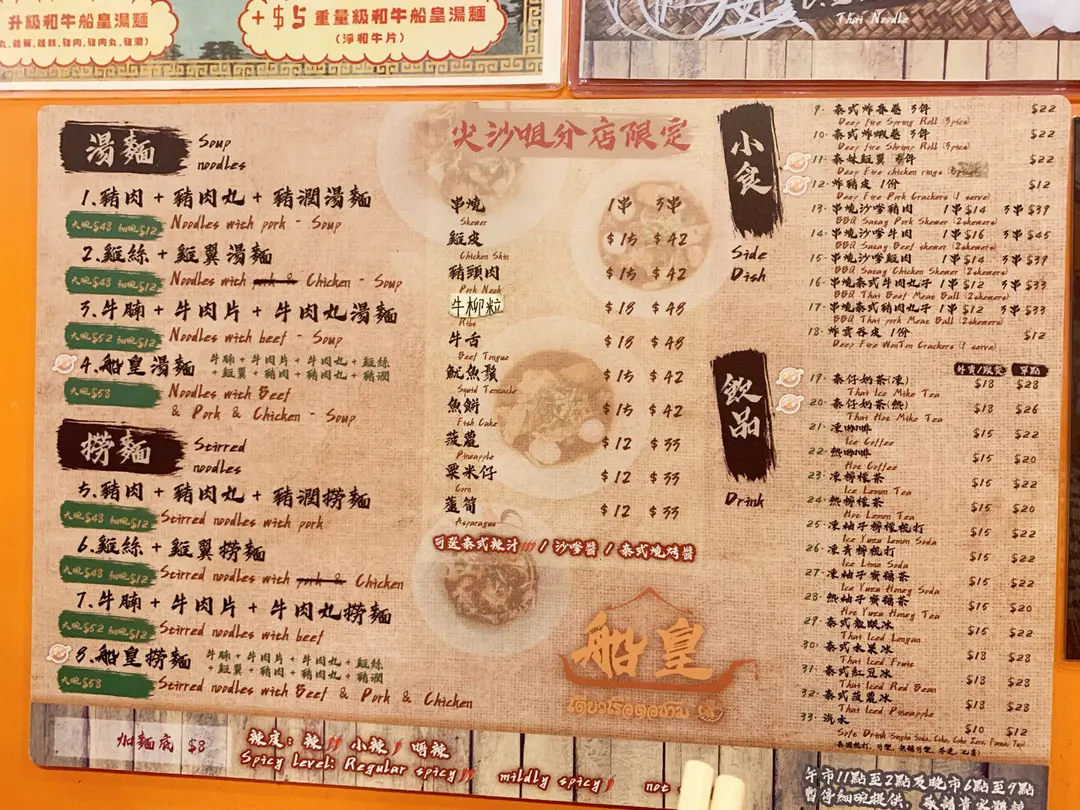 升級和牛船皇湯麵
+$5 重量級和牛船皇湯麵
(淨和牛片)
Thai Noodle
湯麵 Soup noodles
1.豬肉 + 豬肉丸 + 豬潤湯麵
大碗$48 細碗$12 Noodles with pork - Soup
2.雞絲 + 雞翼湯麵
大碗$48 細碗$12 Noodles with pork & Chicken - Soup
3.牛腩 + 牛肉片 + 牛肉丸湯麵
大碗$52 細碗$12 Noodles with beef - Soup
4.船皇湯麵 牛腩 + 牛肉片 + 牛肉丸 + 雞絲
+ 雞翼 + 豬肉 + 豬肉丸 + 豬潤
大碗$58 Noodles with Beef
& Pork & Chicken - Soup
撈麵 Stirred noodles
5.豬肉 + 豬肉丸 + 豬潤撈麵
大碗$48 細碗$12 Stirred noodles with pork
6.雞絲 + 雞翼撈麵
大碗$48 細碗$12 Stirred noodles with pork & Chicken
7.牛腩 + 牛肉片 + 牛肉丸撈麵
大碗$52 細碗$12 Stirred noodles with beef
8.船皇撈麵 牛腩 + 牛肉片 + 牛肉丸 + 雞絲
+ 雞翼 + 豬肉 + 豬肉丸 + 豬潤
大碗$58 Stirred noodles with Beef & Pork & Chicken
加麵底 $8
辣度: 辣 小辣 唔辣
Spicy level: Regular spicy mildly spicy not
尖沙咀分店限定
串燒 1串 3串
Skewer
雞皮 $15 $42
Chicken Skin
豬頸肉 $15 $42
Pork Neck
牛柳粒 $18 $48
Ribs
牛舌 $18 $48
Beef Tongue
魷魚鬚 $15 $42
Squid Tentacle
魚餅 $15 $42
Fish Cake
菠蘿 $12 $33
Pineapple
粟米仔 $12 $33
Corn
蘆筍 $12 $33
Asparagus
可選泰式辣汁 / 沙嗲醬 / 泰式燒烤醬
船皇
小食
Side Dish
9. 泰式炸春卷 3件 $22
Deep fire Spring Roll (3pice)
10. 泰式炸蝦卷 3件 $22
Deep fire Shrimp Roll (3pice)
11. 泰妹雞翼 件 $22
Deep Fire chicken rings
12. 炸豬皮 1份 $12
Deep Fire Pork Crackers (1 serve)
13. 串燒沙嗲豬肉 1串$14 3串$39
BBQ Satay Pork Skewer (2skewers)
14. 串燒沙嗲牛肉 1串$16 3串$45
BBQ Satay Beef skewer (2skewers)
15. 串燒沙嗲雞肉 1串$14 3串$39
BBQ Satay Chicken Skewer (2skewers)
16. 串燒泰式牛肉丸子 1串$12 3串$33
BBQ Thai Beef Meat Ball (2skewers)
17. 串燒泰式豬肉丸子 1串$12 3串$33
BBQ Thai pork Meat Ball (2skewers)
18. 炸雲吞皮 1份 $12
Deep Fire WonTon Crackers (1 serve)
飲品
Drink
外賣/跟餐 單點
19. 泰仔奶茶(凍) $18 $28
Thai Ice Mike Tea
20. 泰仔奶茶(熱) $18 $26
Thai Hot Mike Tea
21. 凍咖啡 $15 $22
Ice Coffee
22. 熱咖啡 $15 $20
Hot Coffee
23. 凍檸檬茶 $15 $22
Ice Lemon Tea
24. 熱檸檬茶 $15 $20
Hot Lemon Tea
25. 凍柚子檸檬梳打 $15 $22
Ice Yuzu Lemon Soda
26. 凍青檸梳打 $15 $22
Ice Lime Soda
27. 凍柚子蜜糖茶 $15 $22
Ice Yuzu Honey Soda
28. 熱柚子蜜糖茶 $15 $20
Hot Yuzu Honey Tea
29. 泰式龍眼冰 $15 $22
Thai Iced Longan
30. 泰式水果冰 $18 $28
Thai Iced Fruit
31. 泰式紅豆冰 $18 $28
Thai Iced Red Bean
32. 泰式菠蘿冰 $18 $28
Thai Iced Pineapple
33. 汽水 $10 $12
午市11點至2點及晚市6點至9點
暫停細碗提供